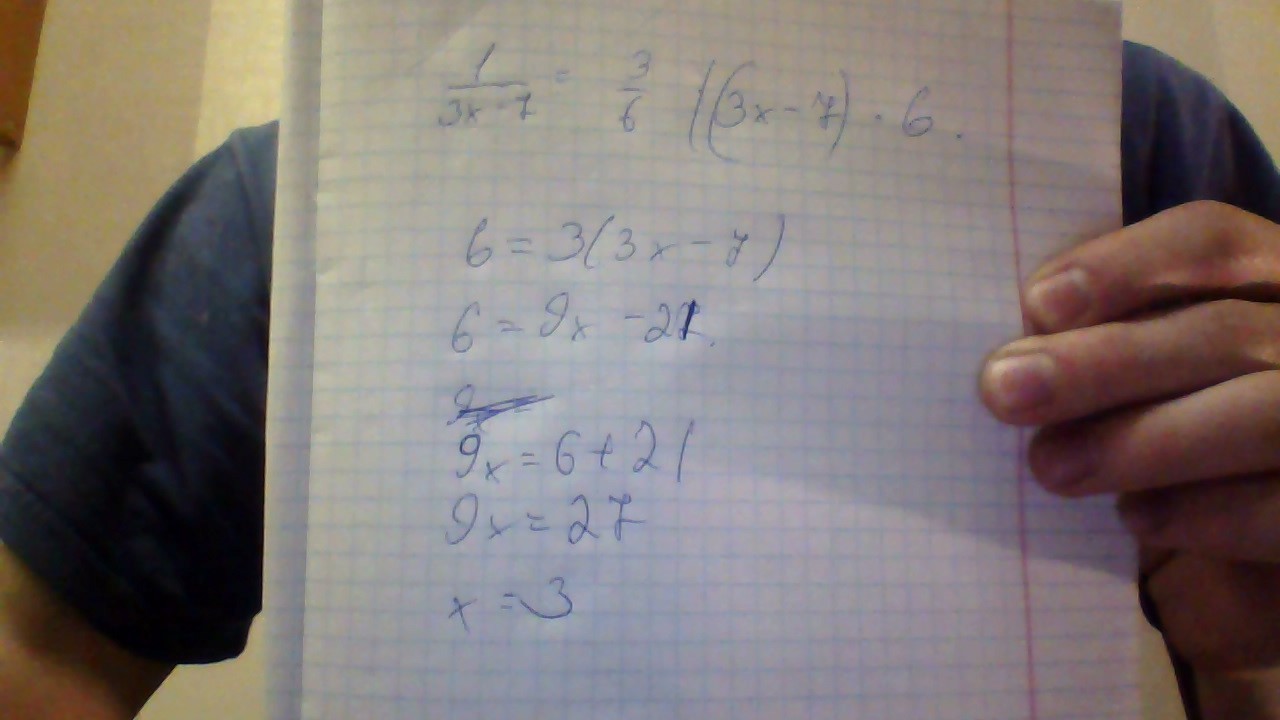 1/(3x-7) = 3/6 |(3x-7)·6.
6=3(3x-7)
6=9x -21.
9x=6+21
9x=27
x=3